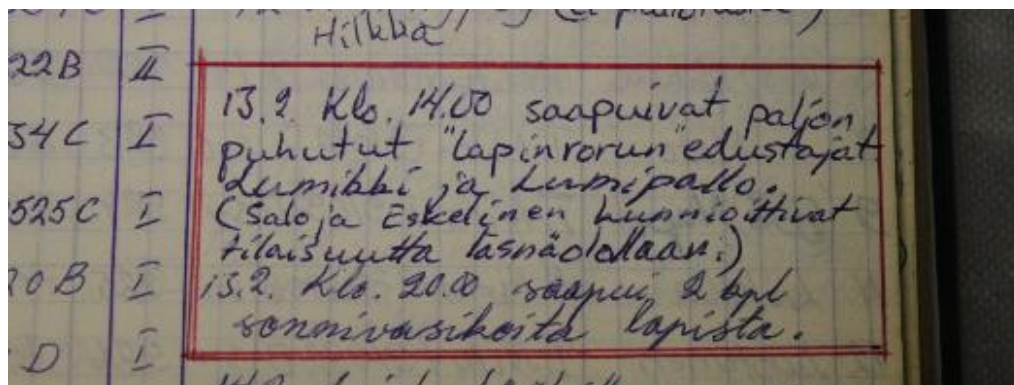 Hilkka
22B II
13.2. Klo. 14.00 saapuivat paljon
34C I
puhutut "lapinrorun" edustajat
Lumikki ja Lumipallo.
525C I
(Salo ja Eskelinen kunnioittivat
tilaisuutta läsnäolollaan.)
20B I
13.2. Klo. 20.00 saapui 2 kpl
sonnivasikoita lapista.
D I